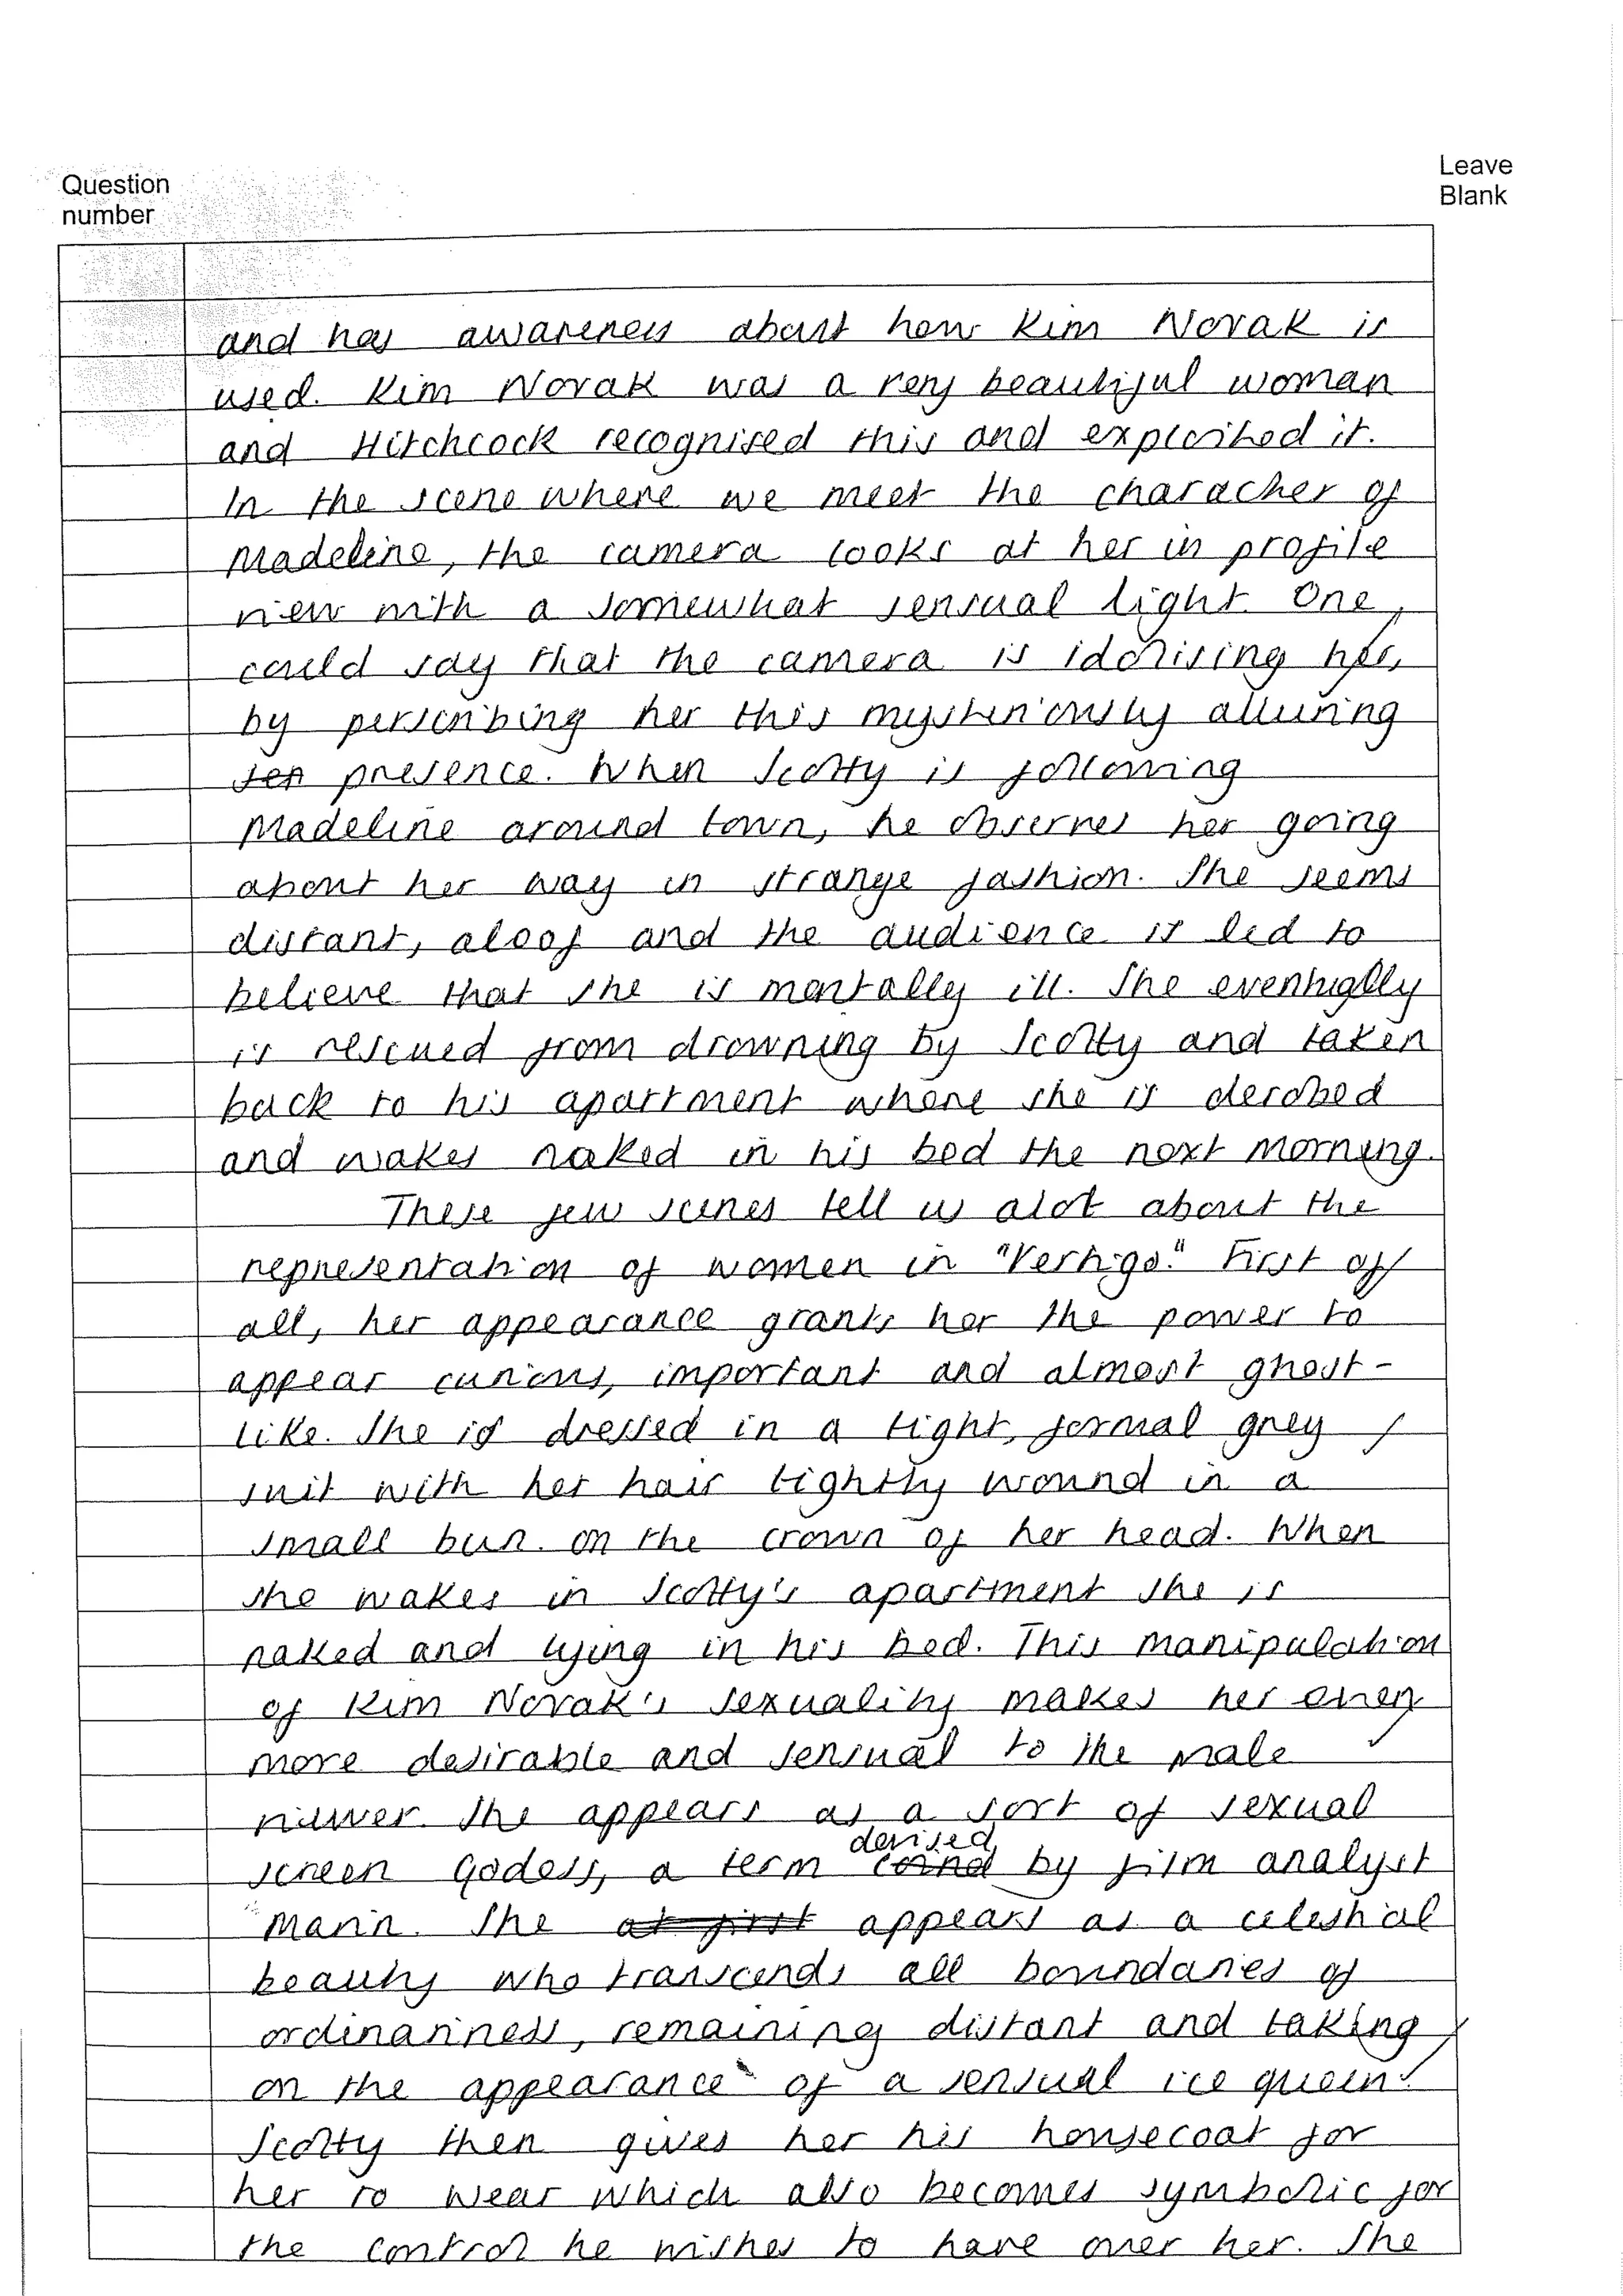 Question
number
Leave
Blank
and has awareness about how Kim Novak is
used. Kim Novak was a very beautiful woman
and Hitchcock recognised this and exploited it.
In the scene where we meet the character of
Madeline, the camera looks at her in profile
view with a somewhat sensual light. One
could say that the camera is idolising her,
by perscribing her this mysteriously alluring
presence. When Scotty is following
Madeline around town, he observes her going
about her way in strange fashion. She seems
distant, aloof and the audience is led to
believe that she is mentally ill. She eventually
is rescued from drowning by Scotty and taken
back to his apartment where she is derobed
and wakes naked in his bed the next morning.
These few scenes tell us alot about the
representation of women in "Vertigo." First of
all, her appearance grants her the power to
appear curious, important and almost ghost-
like. She is dressed in a tight, formal grey
suit with her hair tightly wound in a
small bun on the crown of her head. When
she wakes in Scotty's apartment she is
naked and lying in his bed. This manipulation
of Kim Novak's sexuality makes her even
more desirable and sensual to the male
viewer. She appears as a sort of sexual
screen Godess, a term devised by film analyst
Mann. She appears as a celestial
beauty who transcends all boundaries of
ordinariness, remaining distant and taking
on the appearance of a sensual ice queen.
Scotty then gives her his housecoat for
her to wear which also becomes symbolic for
the control he wishes to have over her. She